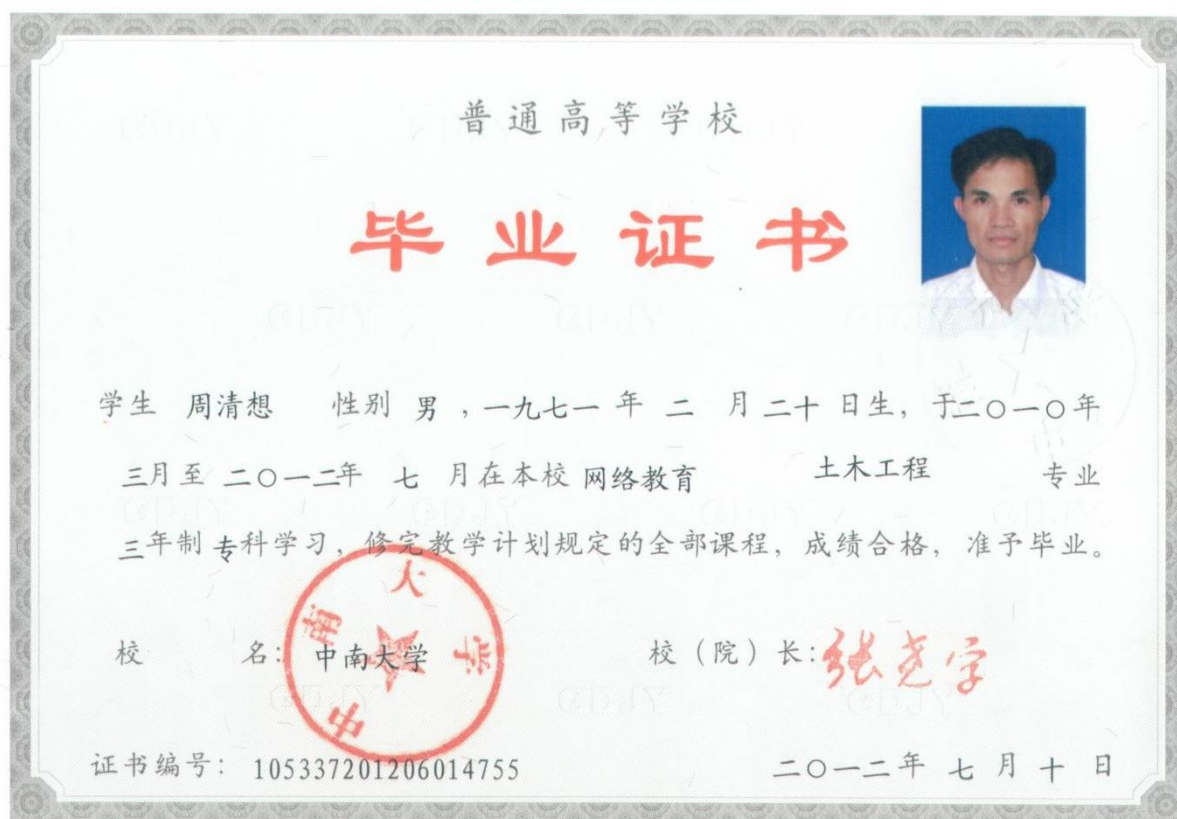 普通高等学校
毕业证书
学生 周清想 性别 男，一九七一 年 二 月 二十 日生，于二〇一〇年
三月至 二〇一二年 七 月在本校 网络教育 土木工程 专业
三年制 专科学习，修完教学计划规定的全部课程，成绩合格，准予毕业。
校 名：中南大学 校（院）长：张尧学
中南大学
证书编号：105337201206014755 二〇一二年 七 月 十 日